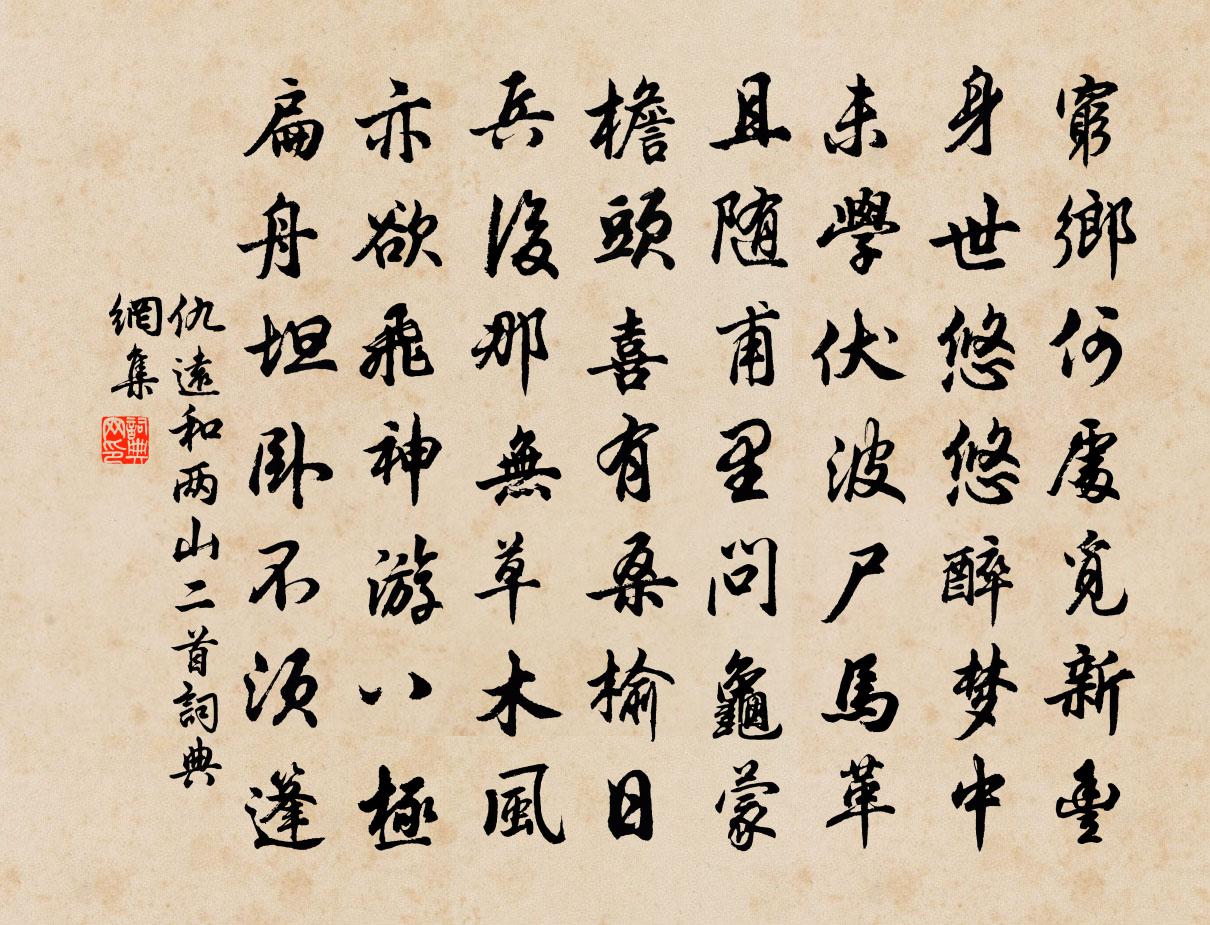 窮鄉何處覓新豐
身世悠悠醉梦中
未學伏波尸馬革
且随甫里問龜蒙
檐頭喜有桑榆日
兵後那無草木風
亦欲飛神游八極
扁舟坦卧不須篷
仇遠和两山二首詞典
網集
詞典
网印